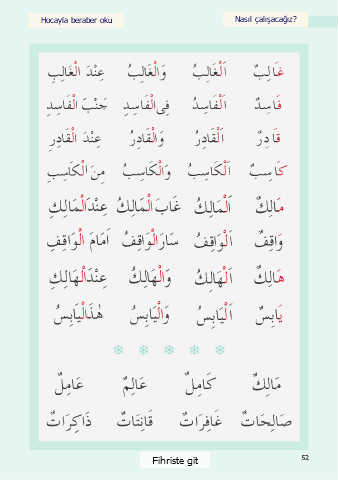 Hocayla beraber oku
Nasıl çalışacağız?
غَالِبٌ اَلْغَالِبُ وَالْغَالِبُ عِنْدَ الْغَالِبِ
فَاسِدٌ اَلْفَاسِدُ فِى الْفَاسِدِ جَنْبَ الْفَاسِدِ
قَادِرٌ اَلْقَادِرُ وَالْقَادِرُ عِنْدَ الْقَادِرِ
كَاسِبٌ اَلْكَاسِبُ وَالْكَاسِبُ مِنَ الْكَاسِبِ
مَالِكٌ اَلْمَالِكُ غَابَ الْمَالِكُ عِنْدَ الْمَالِكِ
وَاقِفٌ اَلْوَاقِفُ سَارَ الْوَاقِفُ اَمَامَ الْوَاقِفِ
هَالِكٌ اَلْهَالِكُ وَالْهَالِكُ عِنْدَ الْهَالِكِ
يَابِسٌ اَلْيَابِسُ وَالْيَابِسُ هٰذَا الْيَابِسُ
مَالِكٌ كَامِلٌ عَالِمٌ عَامِلٌ
صَالِحَاتٌ غَافِرَاتٌ قَانِتَاتٌ ذَاكِرَاتٌ
52
Fihriste git